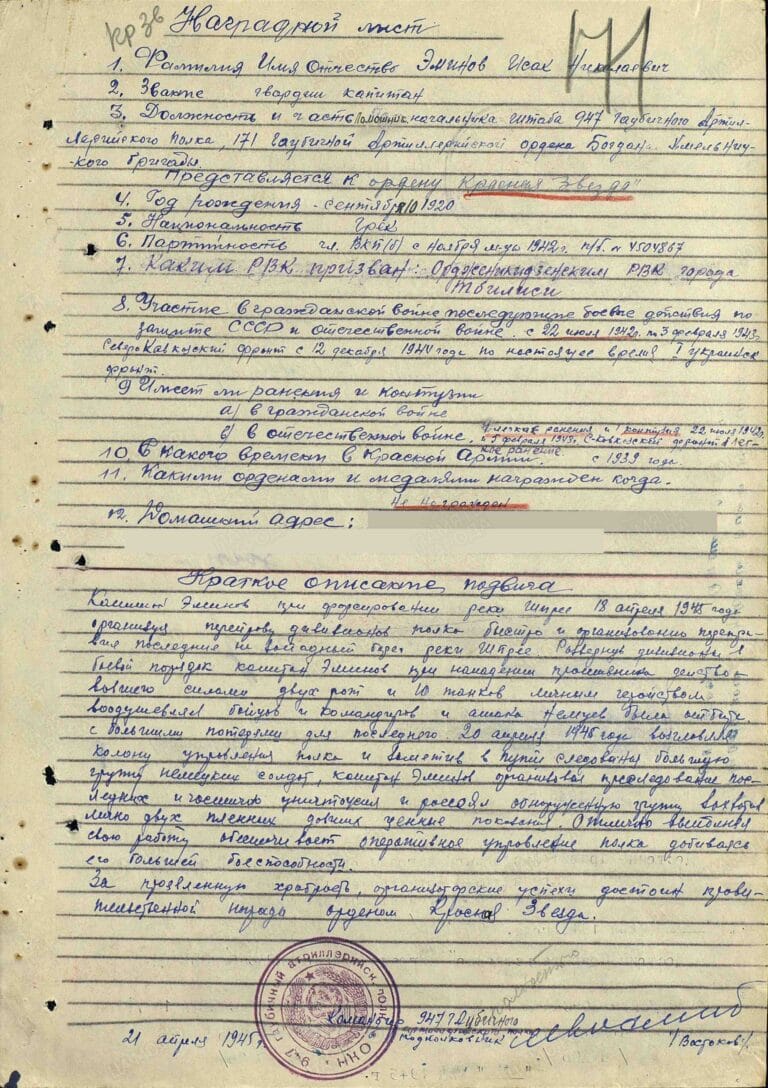 кр зв
Наградной лист
1. Фамилия Имя Отчество Эминов Исак Николаевич
2. Звание гвардии капитан
3. Должность и часть Помощник начальника штаба 947 Гаубичного Артил-
лерийского полка, 171 Гаубичной Артиллерийской ордена Богдана Хмельниц-
-кого бригады.
Представляется к ордену "Красная Звезда"
4. Год рождения - сентябрь 1920
5. Национальность грек
6. Партийность чл. ВКП(б) с ноября м-ца 1942г. п/б. № 4504867
7. Каким РВК призван: Орджоникидзенским РВК города
Тбилиси
8. Участие в гражданской войне последующие боевые действия по
защите СССР и отечественной войне. с 22 июля 1942г. по 3 февраля 1943г.
Северо Кавказский фронт с 12 декабря 1944 года по настоящее время I украинск
фронт.
9 Имеет ли ранения и контузии
а) в гражданской войне
б) в отечественной войне. ранения и 1 контузия 22 июля 1942г.
и 5 февраля 1943г. С-Кавказский фронт лег-
кие ранение.
10. С какого времени в Красной Армии. с 1939 года.
11. Какими орденами и медалями награжден когда.
Не награжден
12. Домашний адрес:
Краткое описание подвига
Капитан Эминов при форсировании реки Шпрее 18 апреля 1945 года
организуя переправу дивизионов полка быстро и организованно перепра-
вив последние на западный берег реки Шпрее. Развернув дивизионы в
боевой порядок капитан Эминов при нападении противника действо-
вавшего силами двух рот и 10 танков личным геройством
воодушевлял бойцов и командиров и атака немцев была отбита
с большими потерями для последнего. 20 апреля 1945 года возглавляя
колону управления полка и заметив в пути следования большую
группу немецких солдат, капитан Эминов организовал преследование пос-
ледних уничтожил и рассеял обнаруженную группу захватив
лично двух пленных давших ценные показания. Отлично выполняя
свою работу обеспечивает оперативное управление полка добиваясь
его большей боеспособности.
За проявленную храбрость, организаторские успехи достоин прави-
тельственной награды орденом Красная Звезда.
Командир 947 Гаубичного
артиллерийского полка
подполковник /Востоков/
21 апреля 1945г.